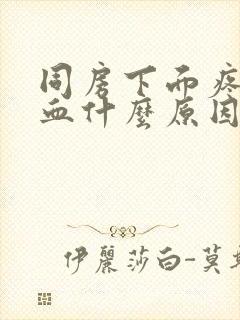 同房下而疼
血什麼原因
伊麗莎白-莫